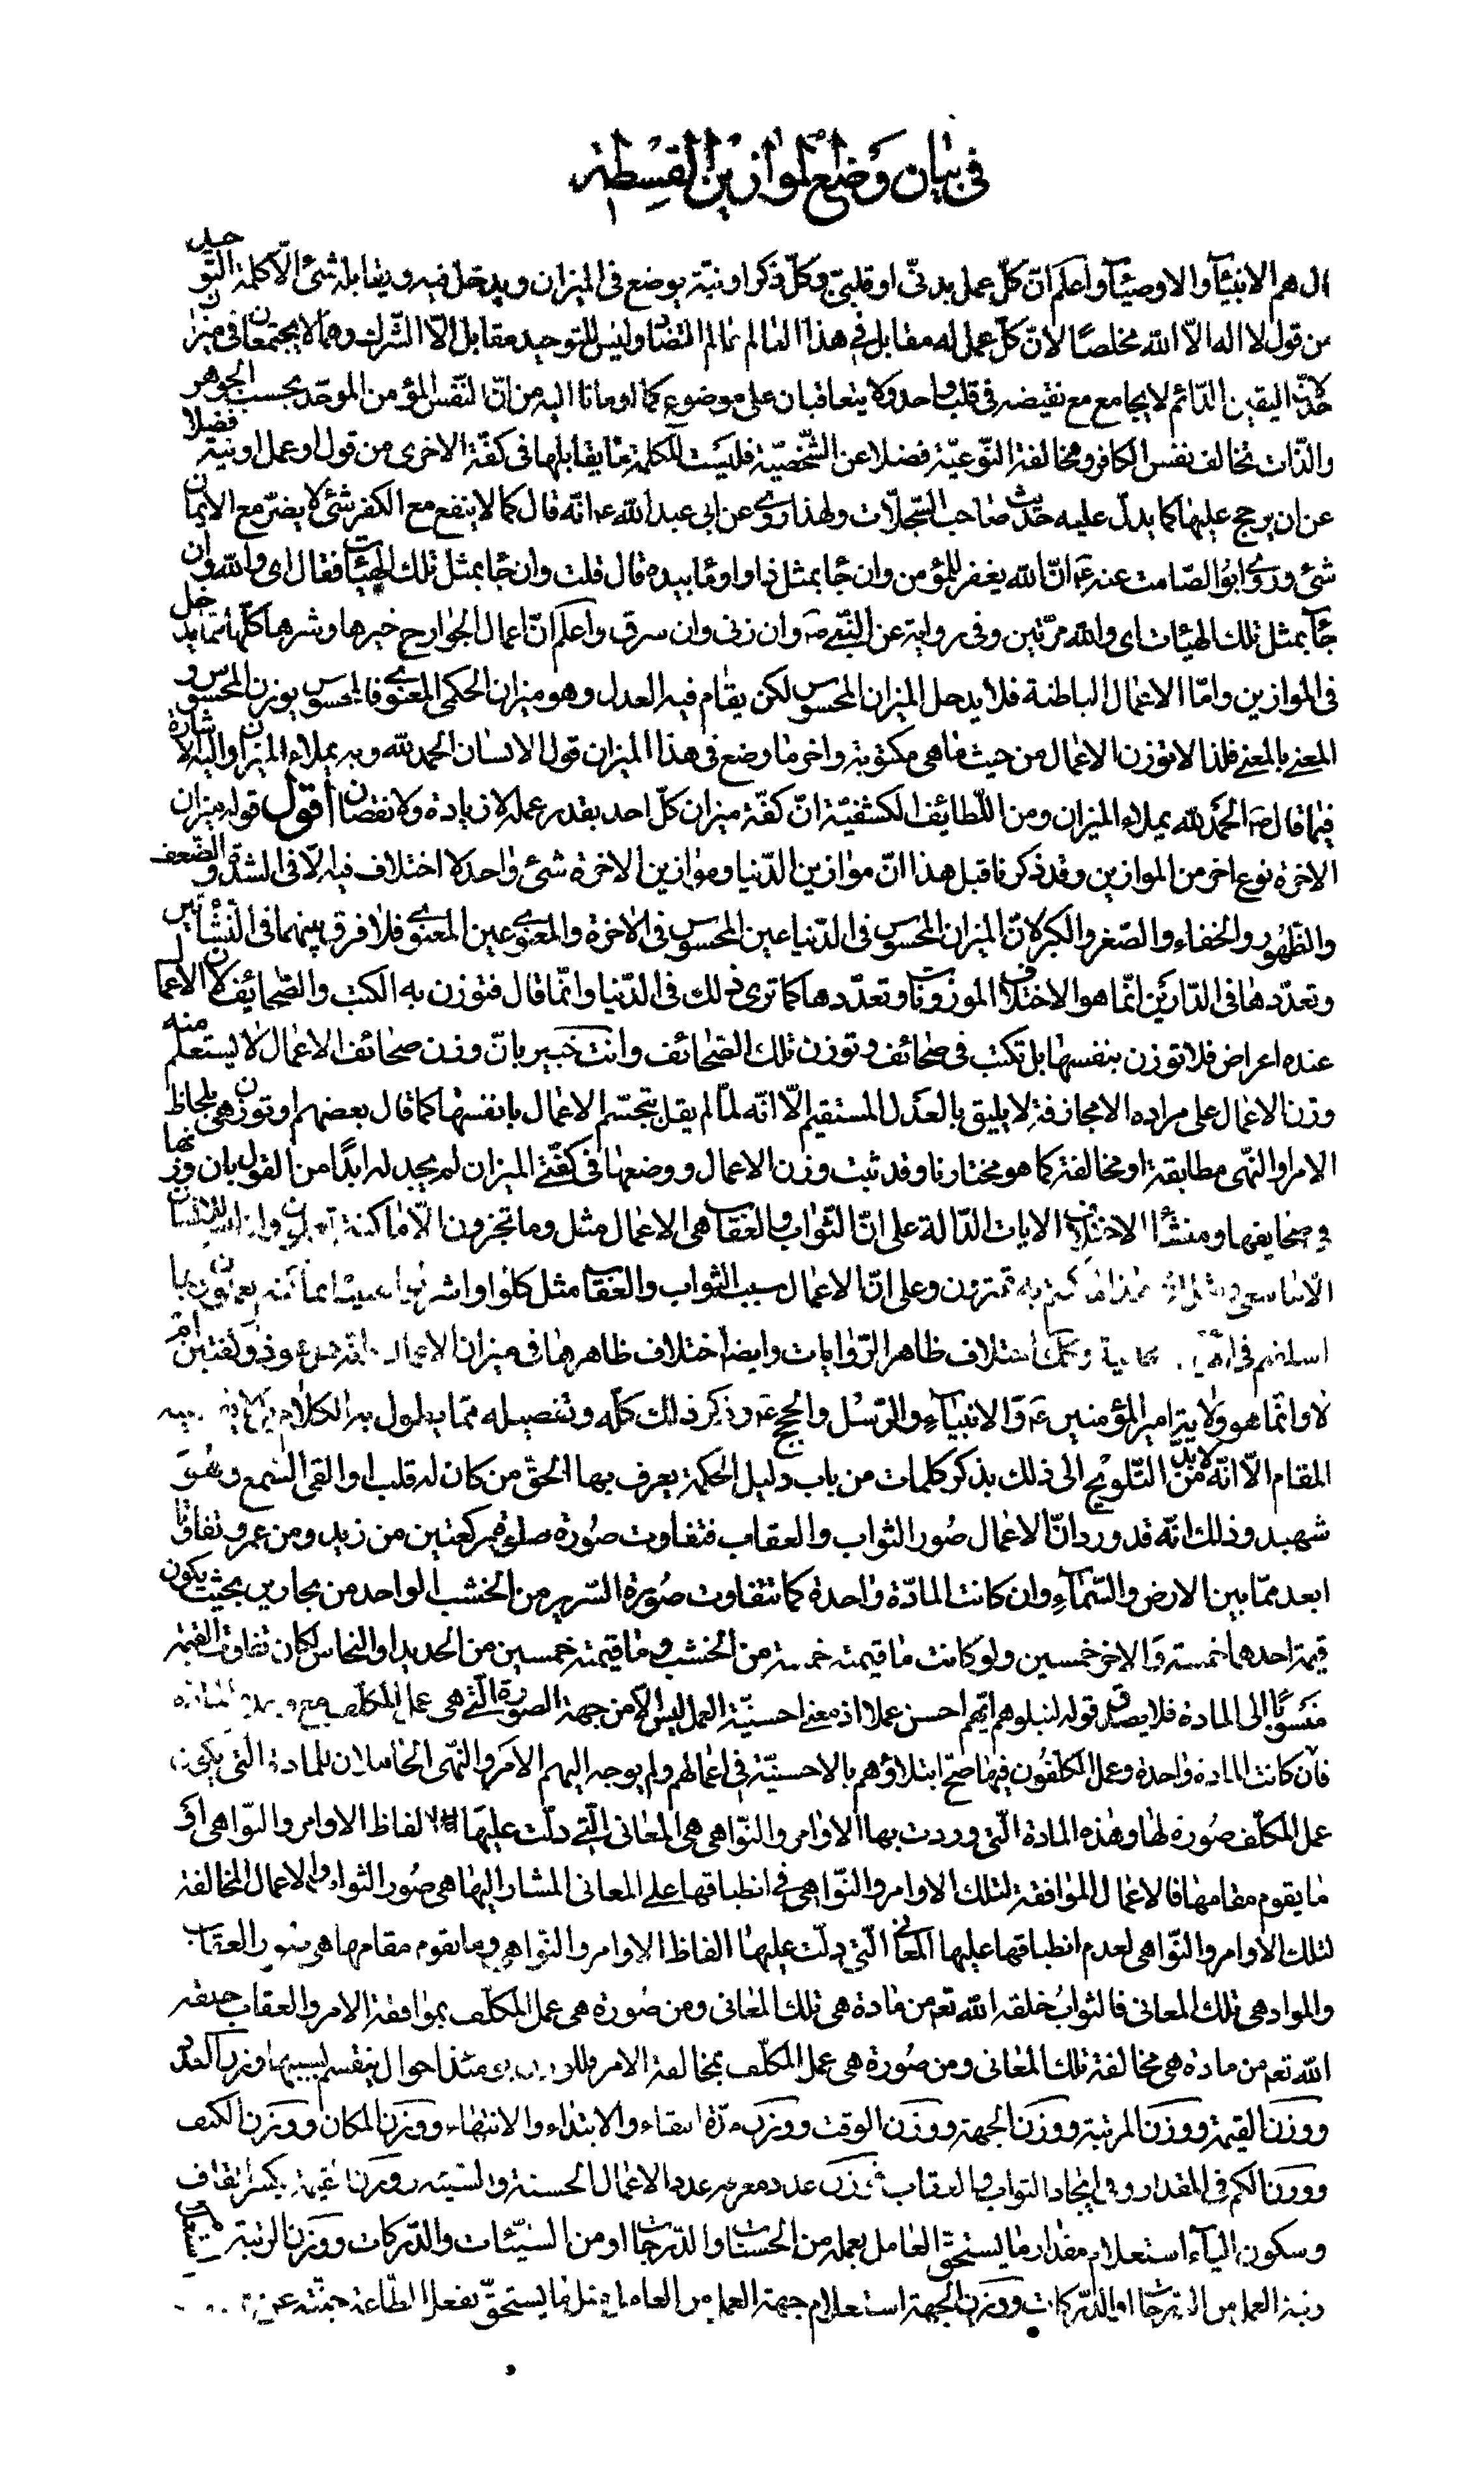 في بيان وضع الموازين القسطية
ال هم الانبيآء والاوصيآء واعلم انّ كلّ عمل بدنّى او قلبىّ وكلّ ذكر او نيّة يوضع فى الميزان ويدخل فيه ويقابله شئ الّا كلمة التّوحيد
من قول لا اله الّا الله مخلصًا لانّ كلّ عمل له مقابل فى هذا العالم عالم التضاد وليس للتوحيد مقابل الّا الشّرك وهما لا يجتمعان فى ميزان
لانّ اليقين الدّائم لا يجامع مع نقيضه فى قلب واحد ولا يتعاقبان على موضوع كما اومانا اليه من انّ النّفس المؤمن الموحّد بحسب الجوهر
والذّات تخالف نفس الكافر ومخالفة النّوعيّة فضلا عن الشّخصيّة فليست للكلمة ما يقابلها فى كفّة الاخرى من قول او عمل او نية فضلا
عن ان يرجح عليها كما يدلّ عليه حديث صاحب السّجلّات ولهذا روى عن ابى عبد الله ع انّه قال كما لا ينفع مع الكفر شئ لا يضرّ مع الايمان
شئ وروى ابو الصّامت عنه ع انّ الله يغفر للمؤمن وان جا بمثل ذا واومأ بيده قال قلت وان جا بمثل تلك الهيئات فقال اى والله وان
جآ بمثل تلك الهيئات اى والله مرّتين وفى رواية عن النّبى ص وان زنى وان سرق واعلم انّ اعمال الجوارح خيرها وشرها كلّها ممّا يدخل
فى الموازين وامّا الاعمال الباطنة فلا يدخل الميزان المحسوس لكن يقام فيه العدل وهو ميزان الحكمى المعنوى فالمحسوس يوزن المحسوس و
المعنى بالمعنى فلذا لا توزن الاعمال من حيث ما هى مكتوبة واخر ما وضع فى هذا الميزان قول الانسان الحمد لله وبه يملاء الميزان واليه الاشارة
فيما قال ص الحمد لله يملاء الميزان ومن اللّطائف الكشفيّة انّ كفّة ميزان كلّ احد بقدر عمله لا زيادة ولا نقصان اقول قوله ميزان
الاخرة نوع اخر من الموازين وقد ذكرنا قبل هذا انّ موازين الدّنيا وموازين الاخرة شئ واحد لا اختلاف فيه الّا فى الشدّة والضّعف
والظّهور والخفاء والصّغر والكبر لانّ الميزان المحسوس فى الدّنيا عين المحسوس فى الاخرة والمعنوى عين المعنوى فلا فرق بينهما فى النّشأتين
وتعدّدها فى الدّارين انّما هو الاختلاف الموزونات وتعدّدها كما ترى ذلك فى الدّنيا وانّما قال فتوزن به الكتب والصّحايف لانّ الاعمال
عنده اعراض فلا توزن بنفسها بل تكتب فى صحائف وتوزن تلك الصّحائف وانت خبير بانّ وزن صحائف الاعمال لا يستعلم منه
وزن الاعمال على مراده الا مجازفة لا يليق بالعدل المستقيم الّا انّه لمّا لم يقل بتجسّم الاعمال بانفسها كما قال بعضهم او توزن هى بلحاظ
الامر والنّهى مطابقة او مخالفة كما هو مختارنا وقد ثبت وزن الاعمال ووضعها فى كفّتى الميزان لم يجد له ابدًا من القول بان وزنها
فى صحايفها ومنشأ الاختلاف الايات الدّالة على انّ الثّواب والعقاب هى الاعمال مثل وما تجزون الّا ما كنتم تعملون وان ليس للانسان
الّا ما سعى ومثل هذا ما كنتم به تمترون وعلى انّ الاعمال سبب الثواب والعقاب مثل كلوا واشربوا هنيئا بما كنتم تعملون بما
اسلفتم فى الايّام الخالية وكك اختلاف ظاهر الرّوايات وايضا اختلاف ظاهرها فى ميزان الاعمال وذو كفّتين ام
لا وانّما هو ولاية امير المؤمنين ع والانبيآء والرّسل والحجج ع وذكر ذلك كلّه وتفصيله ممّا يطول به الكلام
المقام الّا انّه لا بدّ من التّلويح الى ذلك بذكر كلمات من باب دليل الحكمة يعرف بها الحقّ من كان له قلب او القى السّمع وهو
شهيد وذلك انّه قد ورد انّ الاعمال صور الثواب والعقاب فتفاوت صورة صلوة ركعتين من زيد ومن عمرو تفاوتا
ابعد ممّا بين الارض والسّماء وان كانت المادّة واحدة كما تتفاوت صورة السّرير من الخشب الواحد من نجارين بحيث يكون
قيمة احدهما خمسة والاخر خمسين ولو كانت ما قيمته خمسة من الخشب وما قيمته خمسين من الحديد او النحاس لكان تفاوت القيمة
منسوبًا الى المادة فلا يصدق قوله لنبلوهم ايّهم احسن عملا اذ معنى احسنيّة العمل ليس الّا من جهة الصورة الّتى هى عمل المكلّف
فان كانت المادة واحدة وعمل المكلّفون فيها صحّ ابتلاؤهم بالاحسنيّة فى اعمالهم ولم يوجه اليهم الامر والنّهى الحاملان للمادة التى يكون
عمل المكلّف صورة لها وهذه المادة الّتى وردت بها الاوامر والنّواهى هى المعانى الّتى دلّت عليها الفاظ الاوامر والنّواهى او
ما يقوم مقامها فالاعمال الموافقة لتلك الاوامر والنّواهى فى انطباقها على المعانى المشار اليها هى صور الثواب والاعمال المخالفة
لتلك الاوامر والنّواهى لعدم انطباقها عليها المعانى الّتى دلّت عليها الفاظ الاوامر والنّواهى وما يقوم مقامها هى صور العقاب
والمواد هى تلك المعانى فالثواب خلقه الله تعم من مادة هى تلك المعانى ومن صورة هى عمل المكلّف بموافقة الامر والعقاب خلقه
الله تعم من مادة هى مخالفة تلك المعانى ومن صورة هى عمل المكلّف بمخالفة الامر احوال ينقسم بسببها وزن العدد
ووزن القيمة ووزن المرتبة ووزن الجهة ووزن الوقت ووزن مدّة البقاء والابتداء والانتهاء ووزن المكان ووزن الكيف
ووزن الكم فى المقدار وفى ايجاد الثواب والعقاب فوزن عدد معرفة عدد الاعمال الحسنة والسّيّئة ووزن القيمة بكسر القاف
وسكون اليآء استعلام مقدار ما يستحقّ العامل بعمله من الحسنات والدّرجات او من السّيّئات والدّركات ووزن الرتبة
رتبة العمل من الدّرجات او الدّركات ووزن الجهة استعلام جهة العمل من العامل مثل ما يستحقّ بفعل الطّاعة جنّته عن